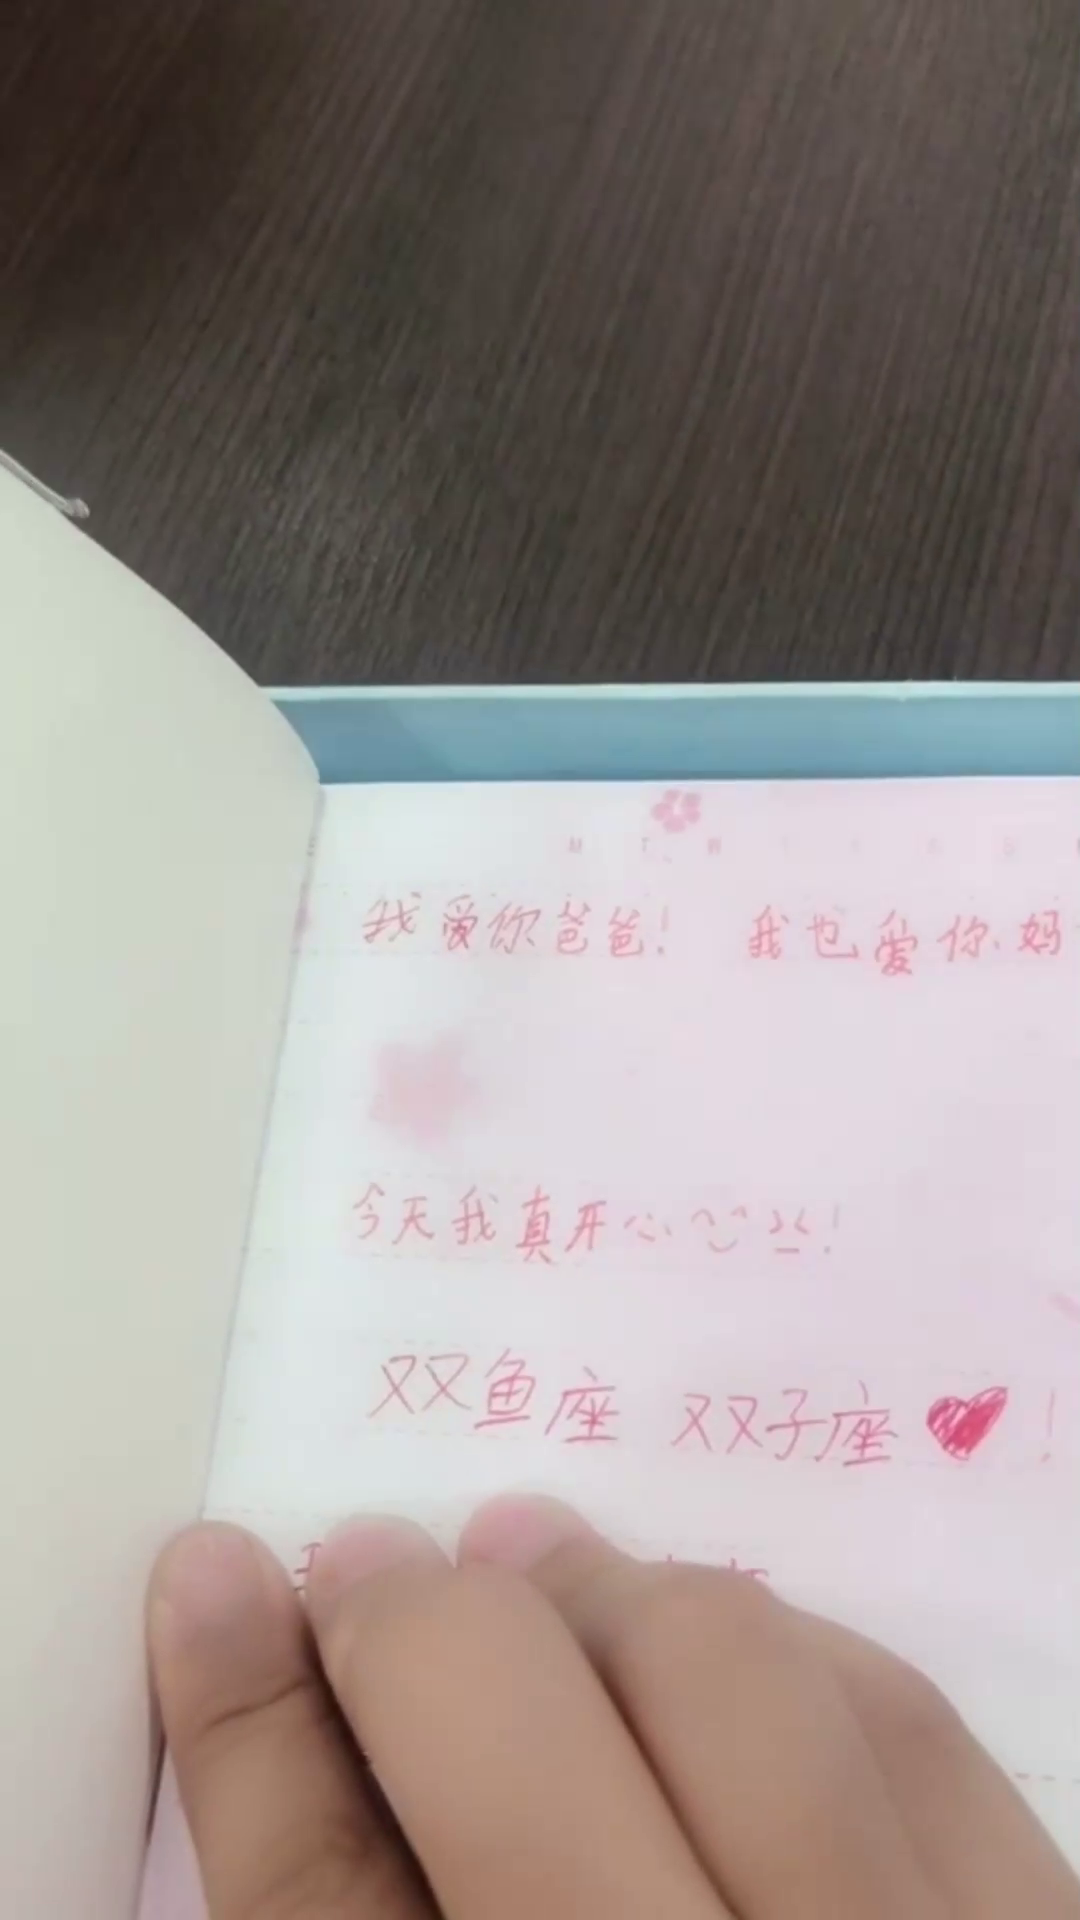 我爱你爸爸! 我也爱你妈
今天我真开心!
双鱼座 双子座❤!